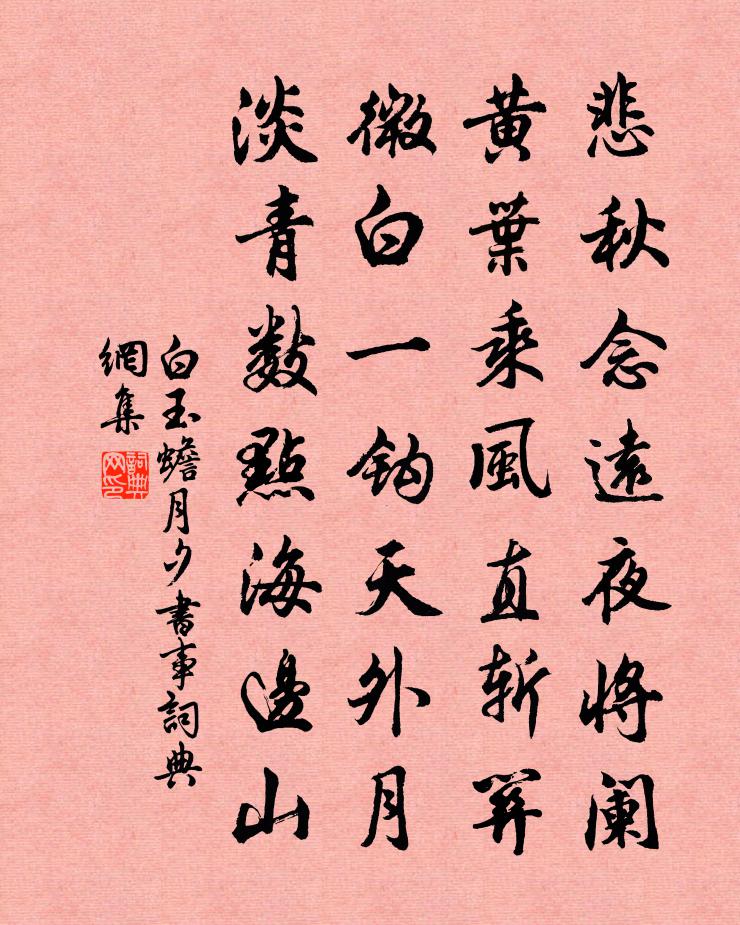 悲秋念遠夜将闌
黃葉乘風直斬關
微白一鈎天外月
淡青数點海邊山
白玉蟾月夕書事詞典
網集
詞典
网印